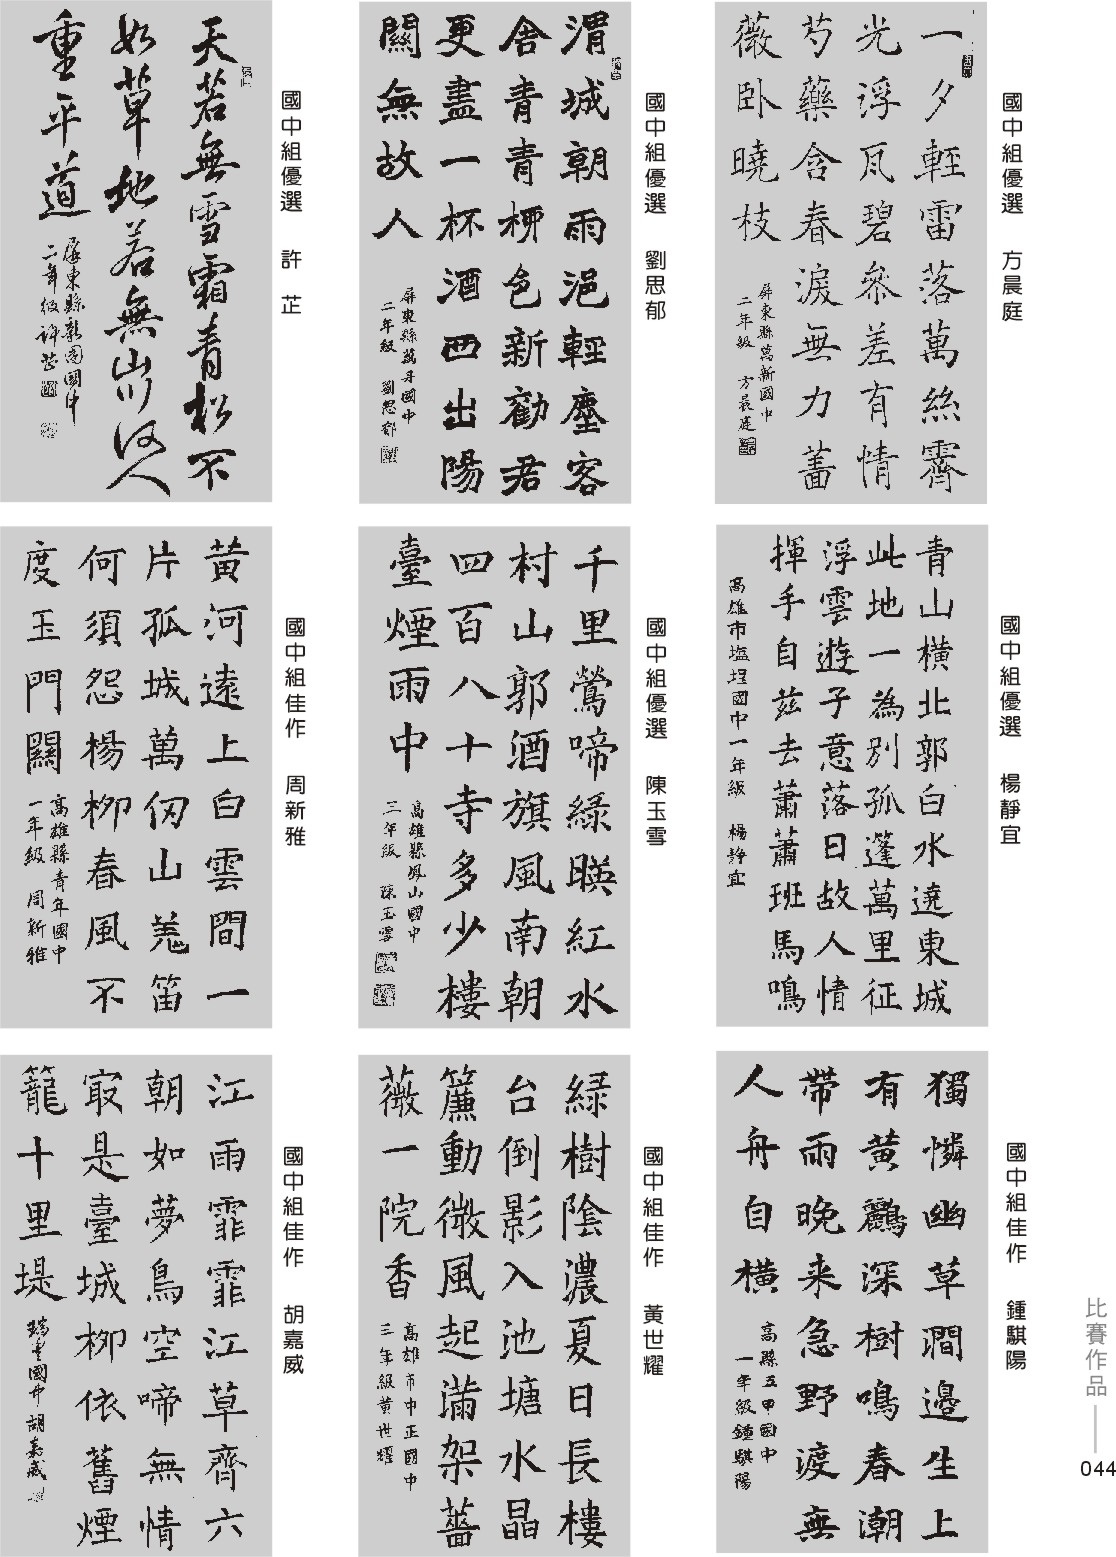 國中組優選 方晨庭
一夕輕雷落萬絲霽
光浮瓦碧參差有情
芍藥含春淚無力薔
薇臥曉枝
屏東縣萬新國中
二年級 方晨庭
國中組優選 劉思郁
渭城朝雨浥輕塵客
舍青青柳色新勸君
更盡一杯酒西出陽
關無故人
屏東縣萬丹國中
二年級 劉思郁
國中組優選 許芷
天若無雪霜青松不
如草地若無山川何人
重平道
屏東縣新園國中
二年級許芷
國中組優選 楊靜宜
青山橫北郭白水遶東城
此地一為別孤蓬萬里征
浮雲遊子意落日故人情
揮手自茲去蕭蕭班馬鳴
高雄市塩埕國中一年級 楊靜宜
國中組優選 陳玉雪
千里鶯啼綠暎紅水
村山郭酒旗風南朝
四百八十寺多少樓
臺煙雨中
高雄縣鳳山國中
三年級 陳玉雪
國中組佳作 周新雅
黃河遠上白雲間一
片孤城萬仞山羗笛
何須怨楊柳春風不
度玉門關
高雄縣青年國中
一年級 周新雅
國中組佳作 鍾騏陽
獨憐幽草澗邊生上
有黃鸝深樹鳴春潮
帶雨晚来急野渡無
人舟自橫
高縣五甲國中
一年級鍾騏陽
國中組佳作 黃世耀
綠樹陰濃夏日長樓
台倒影入池塘水晶
簾動微風起滿架薔
薇一院香
高雄市中正國中
三年級黃世耀
國中組佳作 胡嘉威
江雨霏霏江草齊六
朝如夢鳥空啼無情
冣是臺城柳依舊煙
籠十里堤
瑞豐國中胡嘉威
比賽作品
044